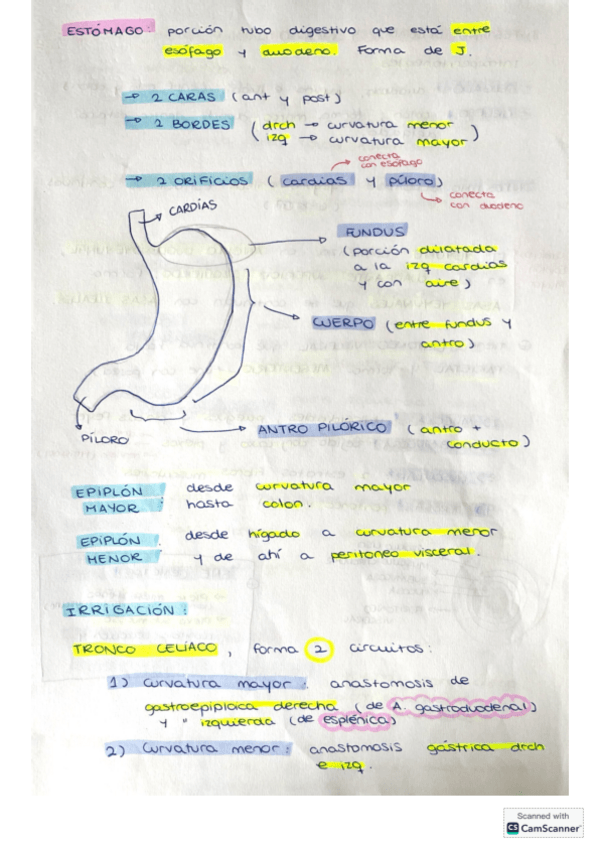 ESTÓMAGO: porción tubo digestivo que está entre
esófago y duodeno. Forma de J.
→ 2 CARAS (ant y post)
→ 2 BORDES (drch → curvatura menor
izq → curvatura mayor)
conecta
con esófago
→ 2 ORIFICIOS (cardias y píloro)
conecta
con duodeno
CARDÍAS
FUNDUS
(porción dilatada
a la izq cardias
y con aire)
CUERPO (entre fundus y
antro)
ANTRO PILÓRICO (antro +
conducto)
PÍLORO
EPIPLÓN desde curvatura mayor
MAYOR: hasta colon.
EPIPLÓN desde hígado a curvatura menor
MENOR: y de ahí a peritoneo visceral.
IRRIGACIÓN:
TRONCO CELÍACO, forma 2 circuitos:
1) Curvatura mayor: anastomosis de
gastroepiploica derecha (de A. gastroduodenal)
y " izquierda (de esplénica)
2) Curvatura menor: anastomosis gástrica drch
e izq.
Scanned with
CS CamScanner